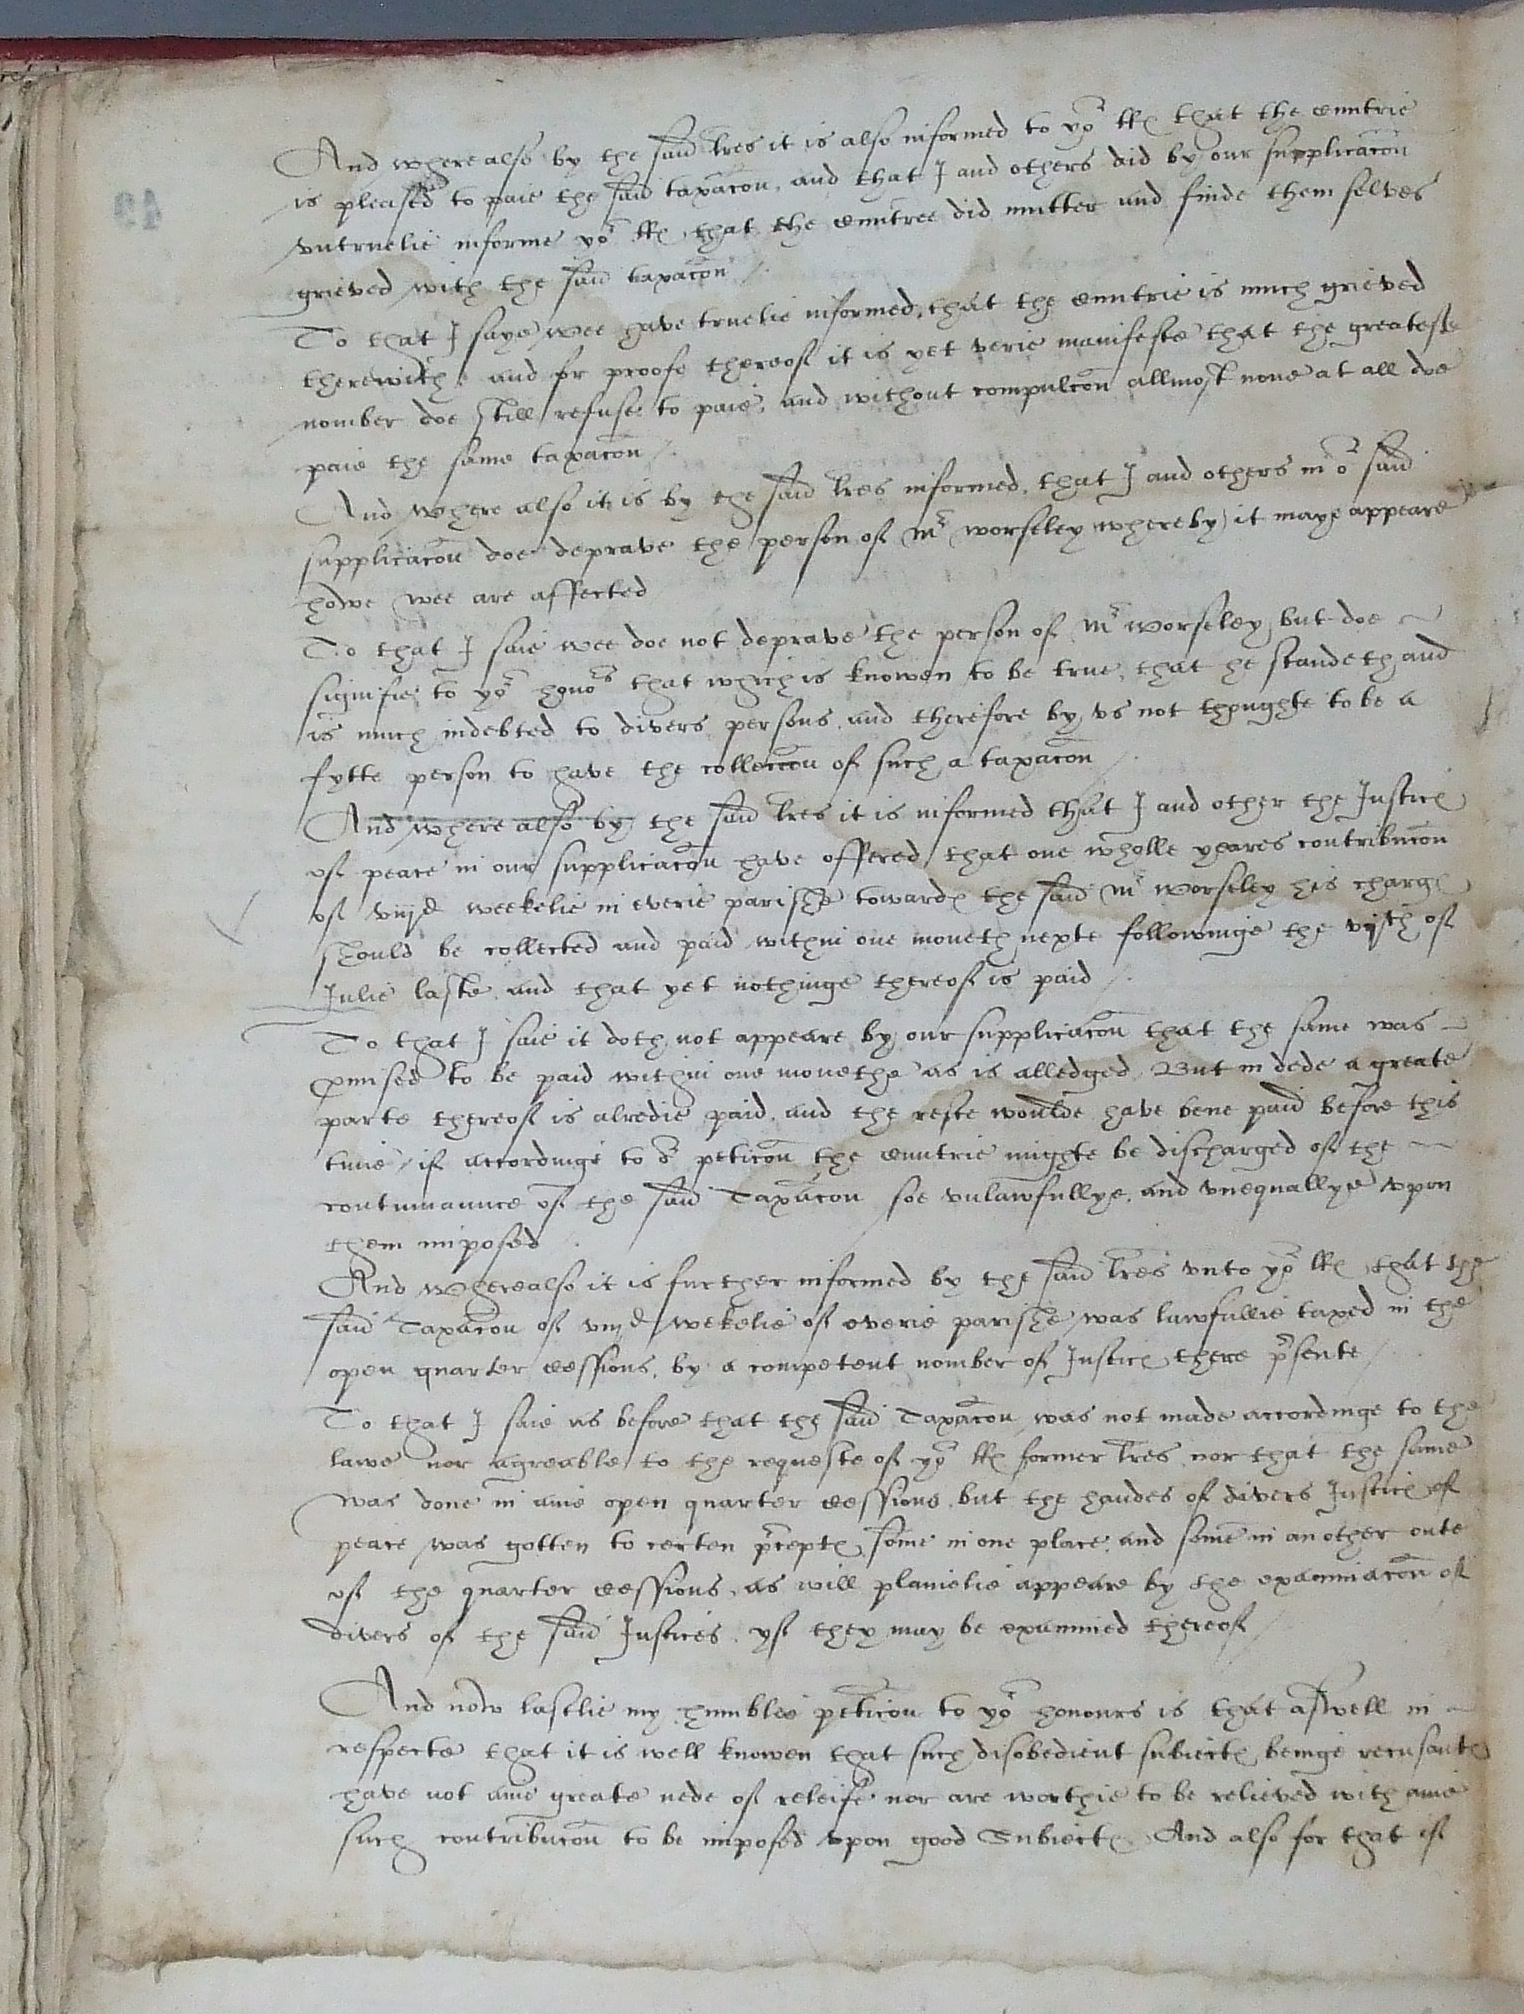 And where also by the said lres it is also informed to yor ll that the cuntrie
is pleased to paie the said taxacon, and that I and others did by our supplicacon
vntruelie informe yor ll that the cuntree did mutter and finde them selves
grieved with the said taxacon /.
To that I saye wee have truelie informed, that the cuntrie is much grieved
therewith, and for proofe thereof it is yet verie manifeste that the greateste
nomber doe still refuse to paie, and without compulcon allmost none at all doe
paie the same taxacon /.
And where also it is by the said lres informed, that I and others in or said
supplicacon doe deprave the person of mr worseley whereby it maye appeare
howe wee are affected
To that I saie wee doe not deprave the person of mr worseley, but doe
signifie to yor honors that which is knowen to be true, that he standeth and
is much indebted to divers persons, and therefore by vs not thoughte to be a
fytte person to have the colleccon of such a taxacon /.
And where also by the said lres it is informed that I and other the Justices
of peace in our supplicacon have offered that one wholle yeares contribucon
of viijd weekelie in everie parishe towards the said mr worseley his charges
should be collected and paid within one moneth nexte followinge the vijth of
Julie laste, and that yet nothinge thereof is paid /.
To that I saie it doth not appeare by our supplicacon that the same was
promised to be paid within one monethe as is alledged, But in dede a greate
parte thereof is alredie paid, and the reste woulde have bene paid before this
time, if accordinge to or peticon the cuntrie mighte be discharged of the
continuaunce of the said Taxacon soe vnlawfullye, and vnequallye vpon
them imposed /.
And wherealso it is further informed by the said lres vnto yor ll that the
said Taxacon of viijd wekelie of everie parishe was lawfullie taxed in the
open quarter cessions, by a competent nomber of Justices there presente /
To that I saie as before that the said Taxacon was not made accordinge to the
lawe nor agreable to the requeste of yor ll former lres, nor that the same
was done in anie open quarter cessions, but the handes of divers Justices of
peace was gotten to certen precepts, some in one place, and some in an other oute
of the quarter cessions, as will plainelie appeare by the examinacon of
divers of the said Justices, yf they may be examined thereof /
And now lastlie my humble peticon to yor honours is that aswell in
respecte that it is well knowen that such disobedient subiects beinge recusants
have not anie greate nede of releife nor are worthie to be relieved with anie
such contribucon to be imposed vpon good Subiects, And also for that if